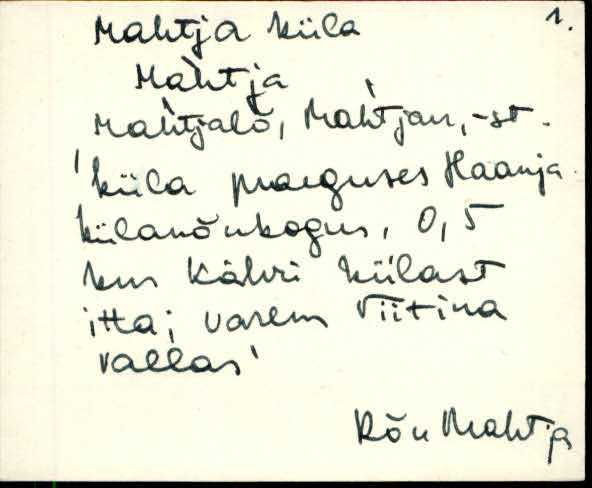 1.
Mahtja küla
Mahtja
Mahtjalõ, Mahtjan, -st.
'küla praeguses Haanja
külanõukogus, 0,5
km Kähri külast
itta; varem Viitina
vallas'
Rõu Mahtja